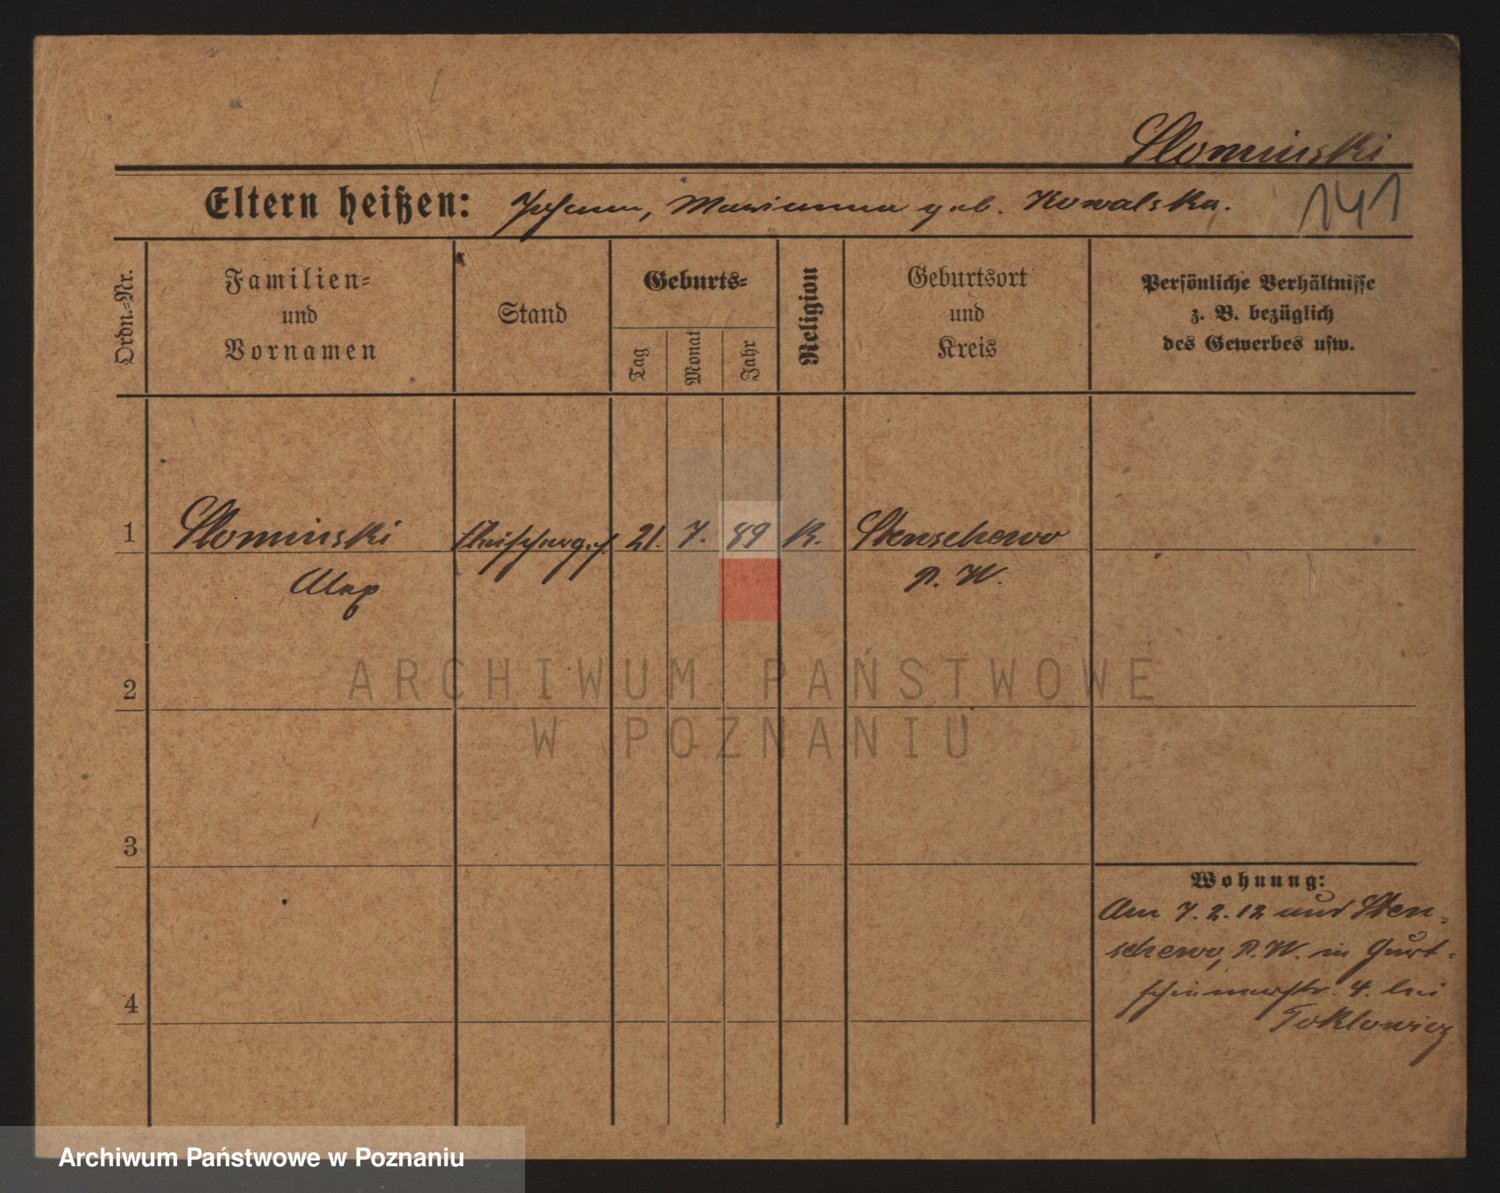 Slominski
Eltern heißen: Johann, Marianna geb. Kowalska.
141
Ordn.-Nr.
Familien-
und
Vornamen
Stand
Geburts-
Tag
Monat
Jahr
Religion
Geburtsort
und
Kreis
Persönliche Verhältnisse
z. B. bezüglich
des Gewerbes usw.
1 Slominski Fleischerges. 21. 7. 89 K. Stenschewo
Alex P. W.
2
3
4
Wohnung:
Am 7.2.12 aus Sten-
schewo, P.W. in Gurt-
schinerstr. 4. bei
ARCHIWUM PAŃSTWOWE
W POZNANIU
Archiwum Państwowe w Poznaniu